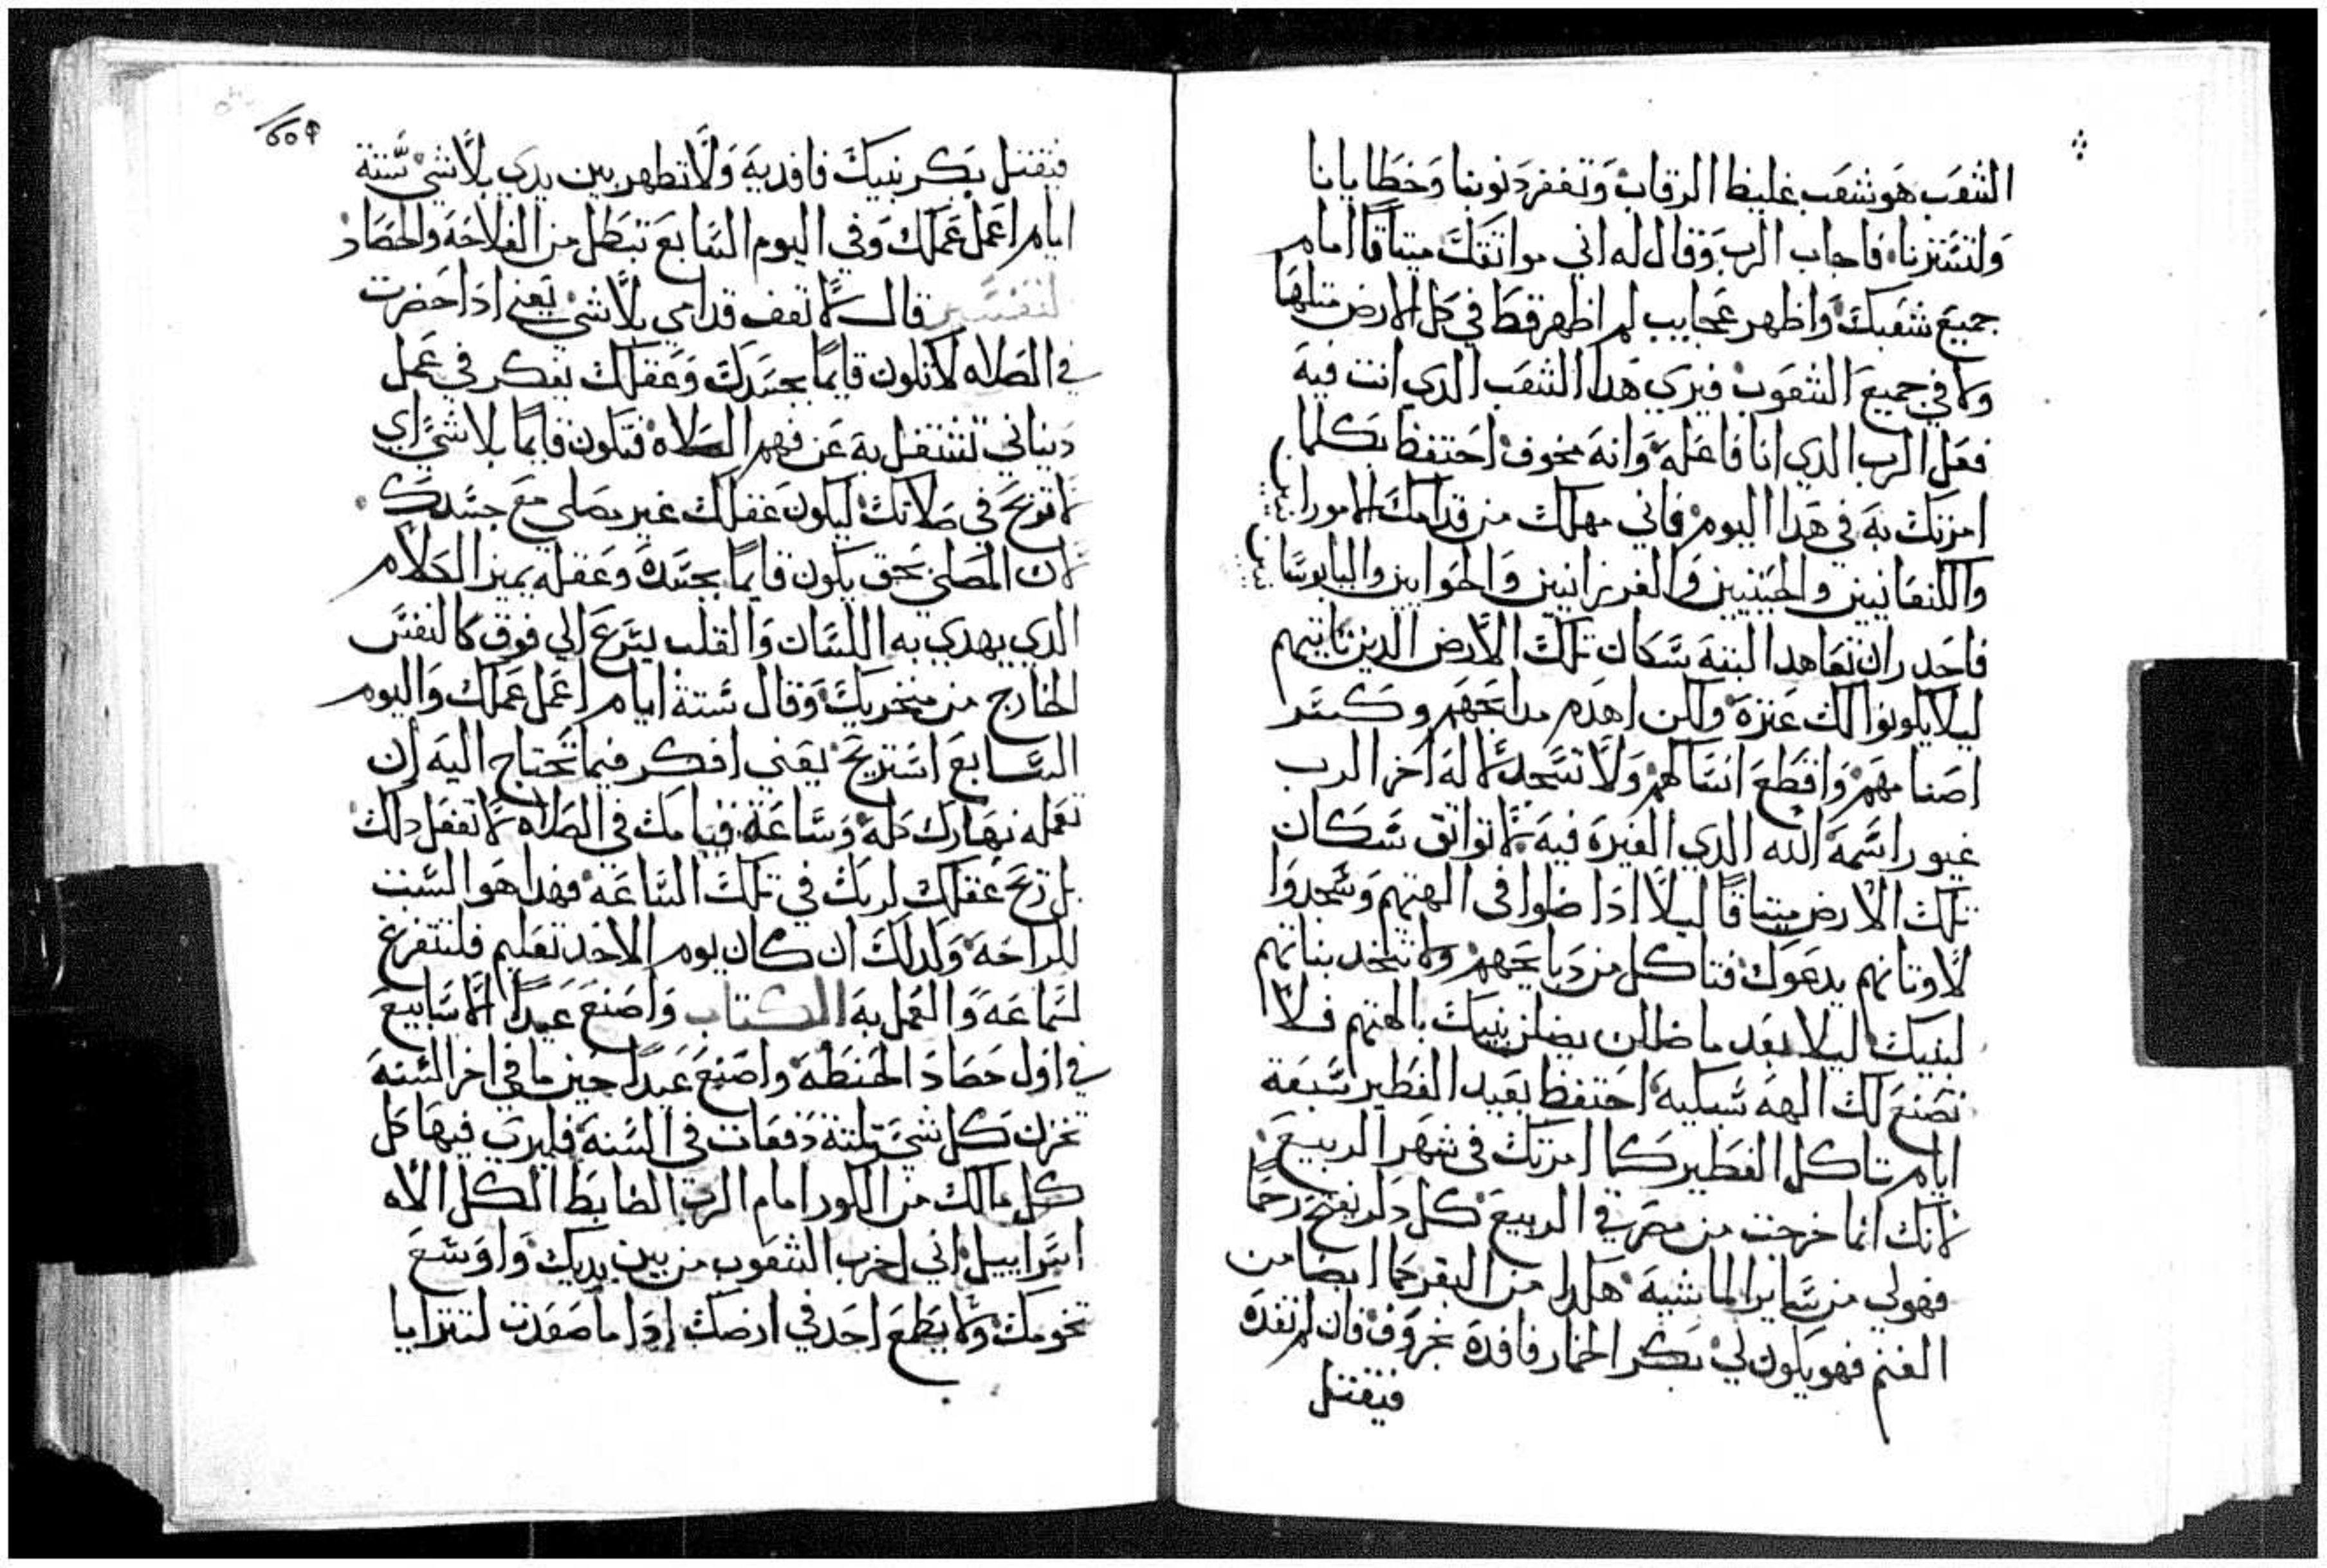 الشعب هو شعب غليظ الرقاب وتغفر ذنوبنا وخطايانا
ولتستزنا، فاجاب الرب وقال له اني مواثقك ميتاقًا امام
جميع شعبك واظهر عجايب لم اظهر قط في كل الارض مثلها
ولا في جميع الشعوب فيري هدا الشعب الدي انت فيه
فعل الرب الدي انا فاعله وانه مخوف احتفظ بكلما
امرتك به في هدا اليوم فاني مهلك من قدامك الامورا
والكنعانيين والحيثيين والفرزانيين والحوايين واليابوسا
فاحدر ان تعاهد البتة سكان تلك الارض الدين تاتيهم
ليلا يكونوا لك عتره ولكن اهدم مدابحهم وكسر
اصنامهم واقطع انسالهم ولا تسجد لاله اخر الرب
غيور اسمه الله الدي الغيره فيه لا تواثق سكان
تلك الارض ميتاقًا ليلا ادا ضلوا في الهتهم وسجدوا
لاوتانهم يدعوك فتاكل من دبايحهم ولا تتخد بناتهم
لبنيك ليلا بعد ما ضللن يضلن بنيك بالهتهم فلا
تصنع لك الهه سبكيه احتفظ بعيد الفطير سبعة
ايام تاكل الفطير كما امرتك في شهر الربيع
لانك انما خرجت من مصر في الربيع كل دكر يفتح رحما
فهو لي من ساير الماشيه هكدا من البقر كما ايضا من
الغنم فهو يكون لي بكر الحمار فافده بخروف فان لم تفده
فيقتل
٤٥٩
فيقتل بكر بنيك فافديه ولا تظهر بين يدي بلا شي ستة
ايام اعمل عملك وفي اليوم السابع تبطل من الفلاحه والحصاد
لتفسير قال لا تقف قدامي بلا شي يعني ادا حضرت
في الصلاه لا تكون قايمًا بجسدك وعقلك يفكر في عمل
دنياني تشتغل به عن فهم الصلاه فتكون قايمًا بلا شي اي
لا تربح في صلاتك ليكون عقلك غير مصلي مع جسدك
لان المصلي بحق يكون قايمًا بجسده وعقله يميز الكلام
الدي يهدي به اللسان والقلب يسرع الي فوق كالنفس
الخارج من منخريك وقال ستة ايام اعمل عملك واليوم
السابع استريح يعني افكر فيما تحتاج اليه ان
تعمله نهارك كله وساعة قيامك في الصلاه لا تفعل دلك
بل تريح عقلك لربك في تلك الساعه فهدا هو السبت
للراحه ولدلك ان كان يوم الاحد تعليم فلتتفرغ
لسماعه والعمل به الكتاب واصنع عيدًا لاسابيع
في اول حصاد الحنطه واصنع عيدًا حين ما في اخر السنه
تخزن كل شي تلتة دفعات في السنه فليري فيها كل
كل مالك من الكور امام الرب الضابط الكل الاه
اسراييل اني اخرب الشعوب من بين يديك واوسع
تخومك ولا يطمع احد في ارضك ادا ما صعدت لتترايا